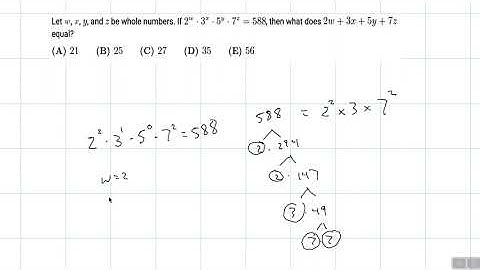 Let w, x, y, and z be whole numbers. If 2^w · 3^x · 5^y · 7^z = 588, then what does 2w + 3x + 5y + 7z
equal?
(A) 21 (B) 25 (C) 27 (D) 35 (E) 56
588 = 2^2 × 3 × 7^2
2^2 · 3^1 · 5^0 · 7^2 = 588
2 · 294
w = 2
2 · 147
3 · 49
7 7